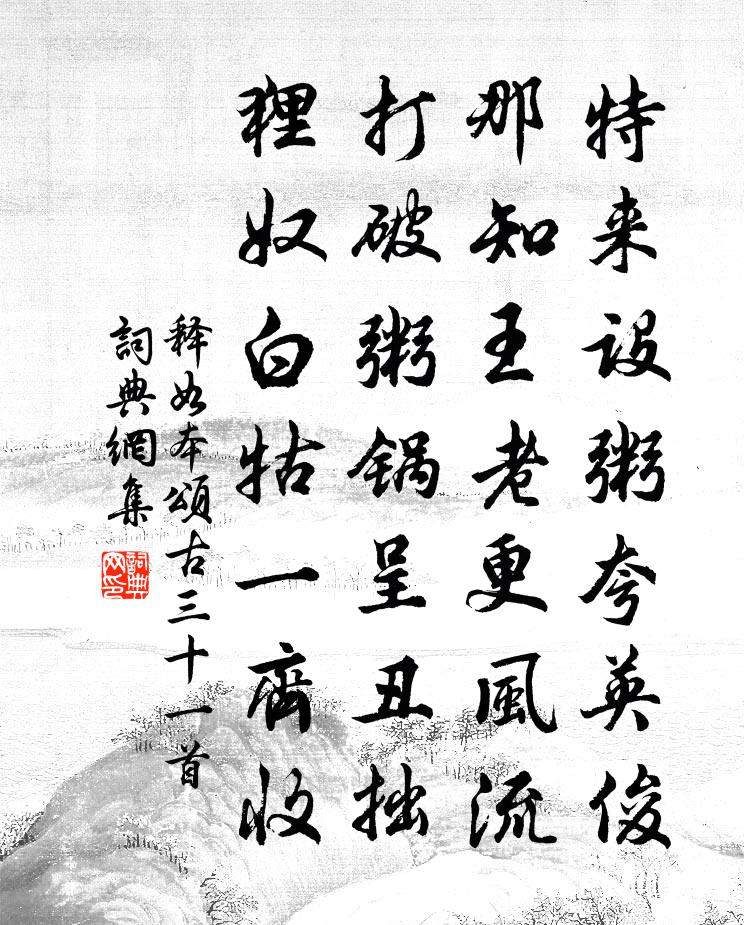 特来设粥夸英俊
那知王老更風流
打破粥锅呈丑拙
狸奴白牯一齊收
释如本頌古三十一首
詞典網集
詞典